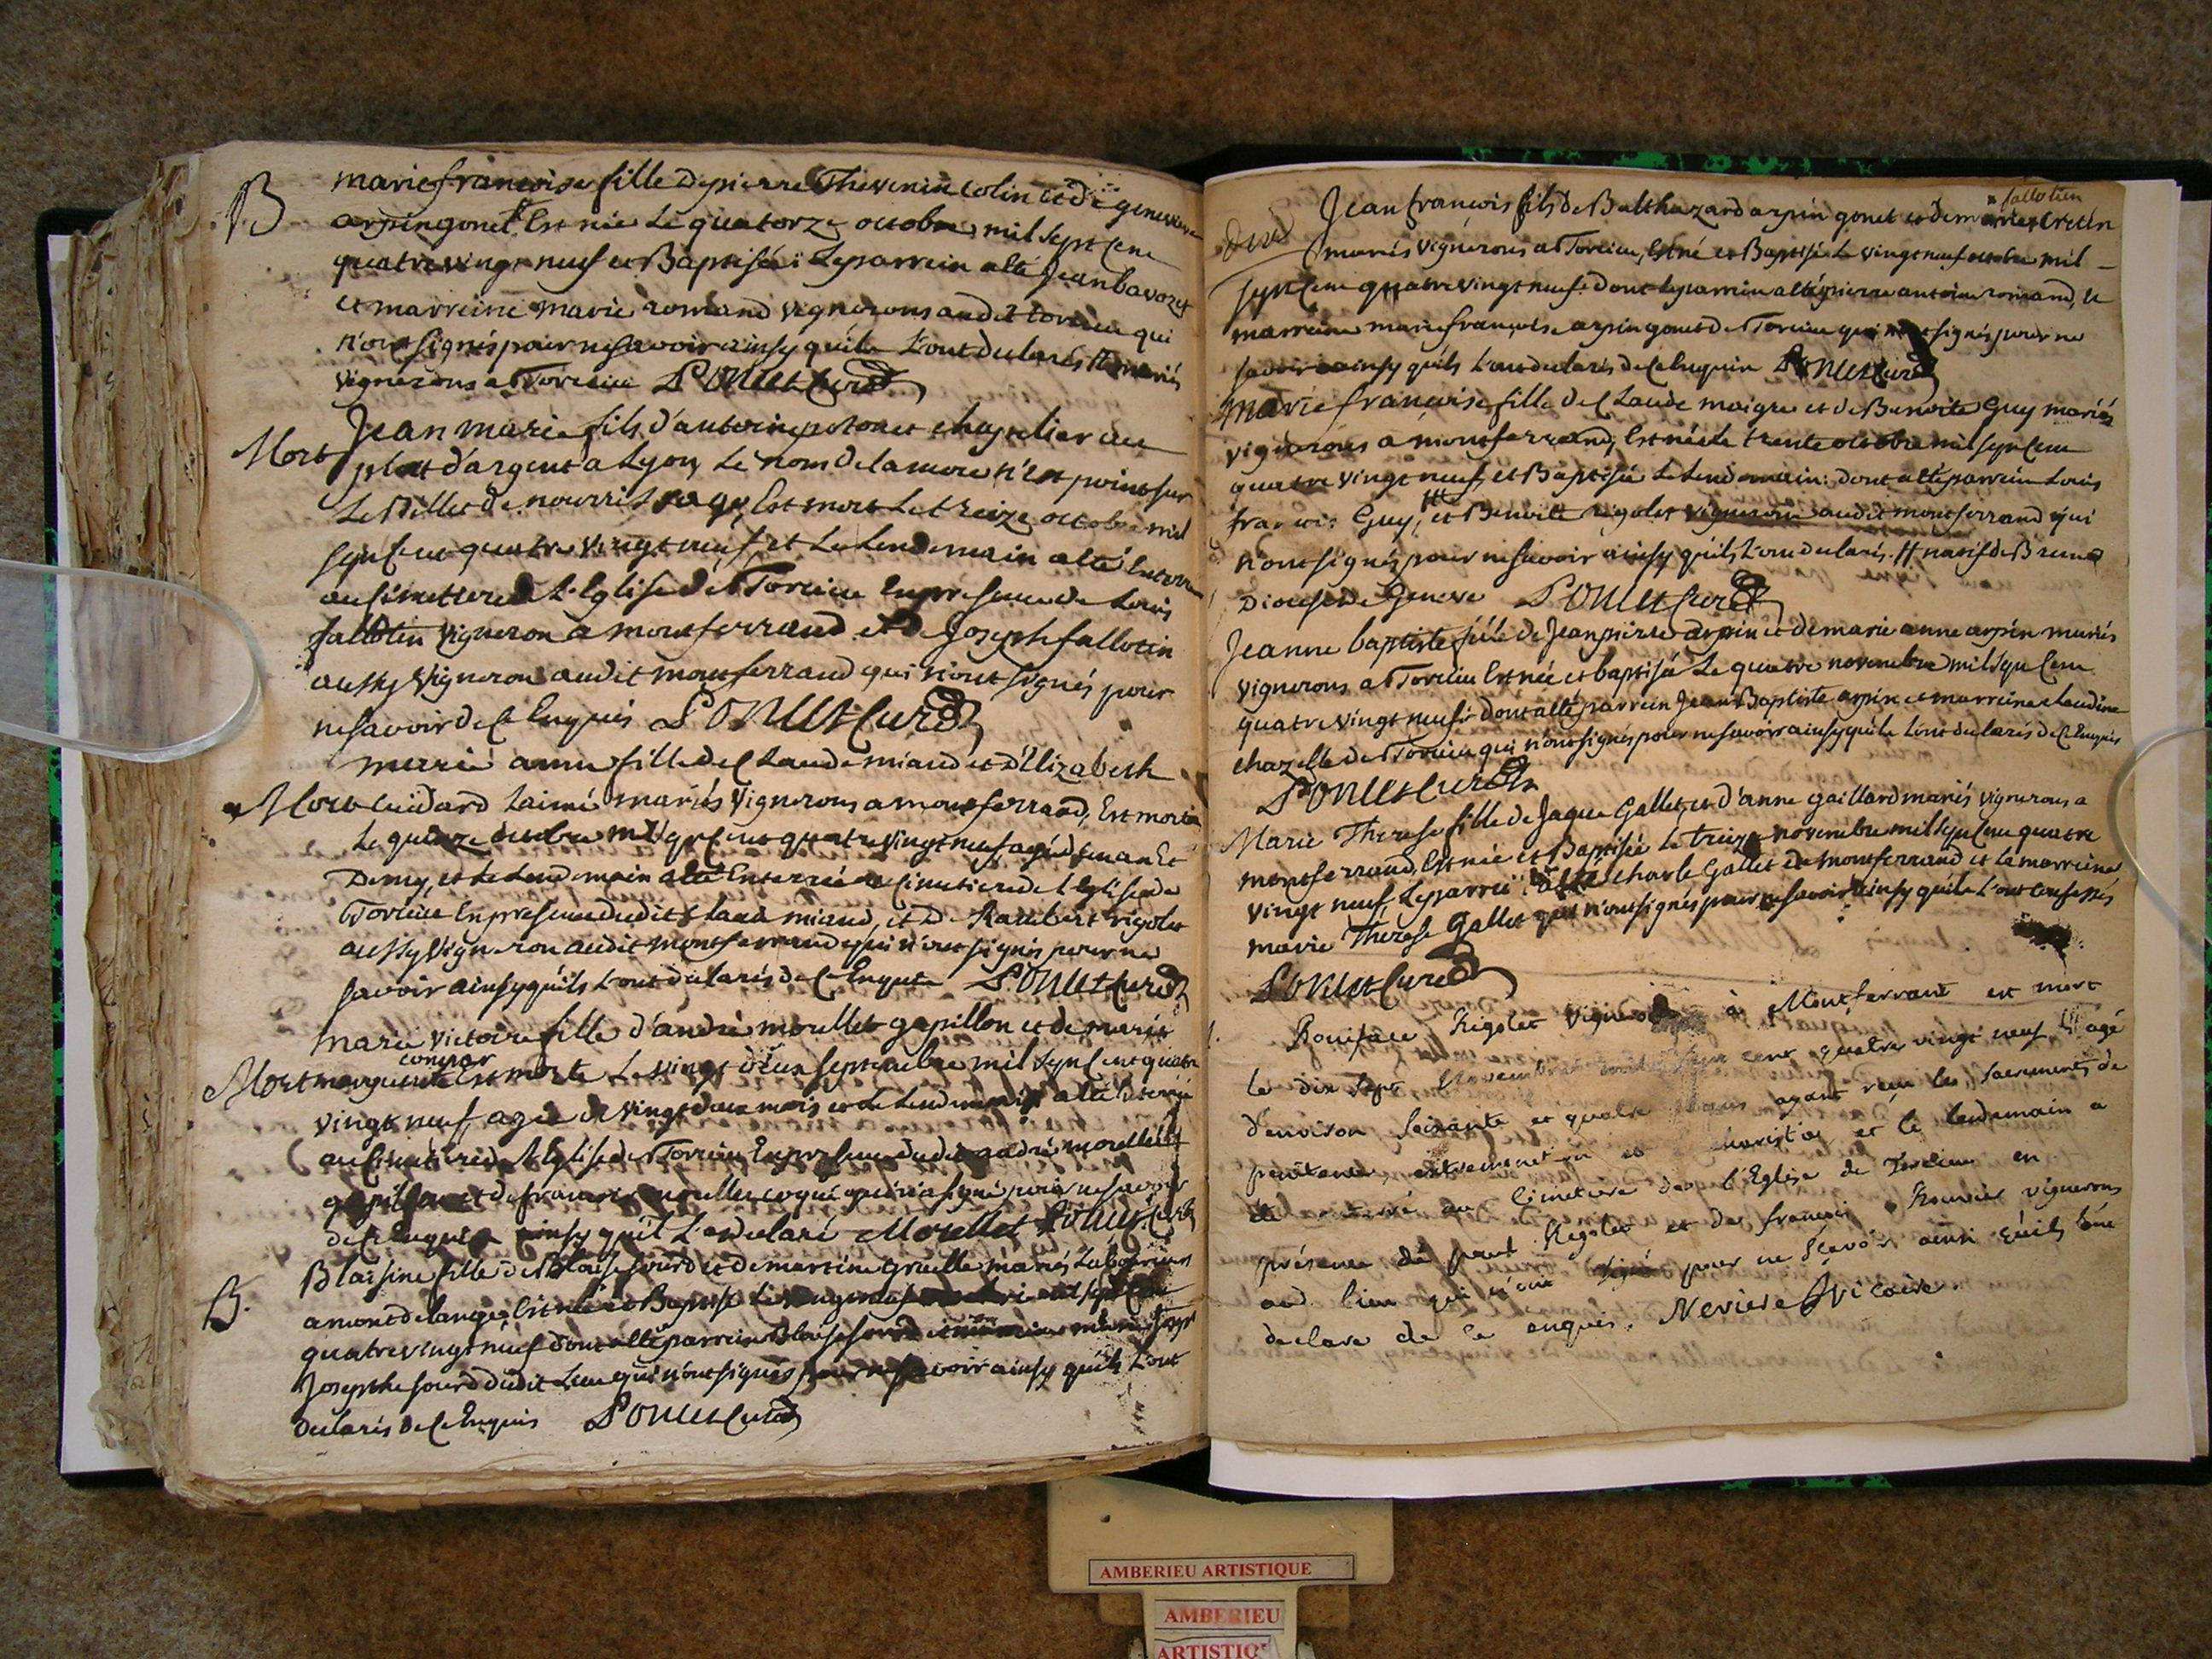 B
marie francoise fille de pierre Thevenin colin et de genevieve
arpin gonet Est née Le quatorze octobre mil sept cent
quatre vingt neuf et Baptisée : Le parrein a été Jean bavozet
et marreine marie romand vignerons audit torcieu qui
n'ont signés pour ne savoir ainsy qu'ils L'ont declarés # mariés
vignerons a Torcieu Poncet Curé
Mort
Jean marie fils d'antoine chapelier au
plat d'argent a Lyon Le nom de la mere n'est point sur
Le Billet de nourrissage, Est mort Le treize octobre mil
sept cent quatre vingt neuf, et Le Lendemain a été Enterré
au Simettiere de L'Eglise de Torcieu En presence de Louis
fallotin vigneron a montferrand et de Joseph fallotin
aussy vigneron audit montferrand qui n'ont signés pour
ne savoir de Ce Enquis Poncet Curé
marie anne fille de Claude miand et d'Elizabeth
Mort
Laimé mariés vignerons a montferrand, Est morte
Le quinze octobre mil sept cent quatre vingt neuf agée d'un an Et
Demy, et Le Lendemain a été Enterrée au Cimetiere de L'Eglise de
Torcieu En presence dudit Claude miand, et de Rambert rigolet
aussy vigneron audit montferrand qui n'ont signés pour ne
savoir ainsy qu'ils L'ont declarés de Ce Enquis Poncet Curé
marie victoire fille d'andré morellet gapillon et de marie
compar
Mort marguerite Est morte Le vingt deux septembre mil sept cent quatre
vingt neuf, agée de vingt deux mois et Le Lendemain a été Enterrée
au Cimetiere de L'Eglise de Torcieu En presence dudit andré morellet
gapillon et de francois morellet coqué qui n'a signé pour ne savoir
de Ce Enquis ainsy qu'il L'a declaré Morellet Poncet Curé
B.
Blaisine fille de Blaise sourd et de martine gruelle mariés Laboureurs
a montdelange Est née et Baptisée Le vingt neuf mil sept cent
quatre vingt neuf dont a été parrein Blaise sourd et
Josephe sourd dudit Lieu qui n'ont signés pour ne savoir ainsy qu'ils L'ont
declarés de Ce Enquis Poncet Curé
x fallotien
Jean francois fils de Balthazard arpin gonet et de marie x Cretin
mariés vignerons a Torcieu, Est né et Baptisé Le vingt neuf octobre mil
sept Cent quatre vingt neuf : Dont Le parrein a été pierre antoine romand, et
marreine marie francoise arpin gonet de Torcieu qui n'ont signés pour ne
savoir ainsy qu'ils L'ont declarés de Ce Enquis Poncet Curé
marie francoise fille de Claude maigre et de Benoite Guy mariés
vignerons a montferrand, Est née Le trente octobre mil sept Cent
quatre vingt neuf et Baptisée Le Lendemain : dont a été parrein Louis
francois Guy, # et Benoite rigolet vignerons audit montferrand qui
n'ont signés pour ne savoir ainsy qu'ils L'ont declarés. # natif de
Diocese de Geneve Poncet Curé
Jeanne baptiste fille de Jean pierre arpin et de marie anne arpin mariés
vignerons a Torcieu Est née et baptisée Le quatre novembre mil sept Cent
quatre vingt neuf : dont a été parrein Jean Baptiste arpin et marreine claudine
chazelle de Torcieu qui n'ont signés pour ne savoir ainsy qu'ils L'ont declarés de Ce Enquis
Poncet Curé
Marie Therese fille de Jaque Gallet, et d'anne gaillard mariés vignerons a
montferrand, Est née et Baptisée Le treize novembre mil sept Cent quatre
vingt neuf Le parrein a été charle Gallet de montferrand et La marreine
marie Thérese Gallet qui n'ont signés pour ne savoir ainsy qu'ils L'ont confessés
Poncet Curé
Boniface Rigolet vigneron à Montferrant est mort
le dix sept Novembre mil sept cent quatre vingt neuf agé
d'environ soixante et quatre ans ayant reçu les sacrements de
penitence, extremonction et et le lendemain a
été enterré au Cimetiere de l'Eglise de Torcieu en
présence de paul Rigolet et de francois vignerons
aud. lieu qui n'ont signé pour ne sçavoir ainsi qu'ils l'ont
declaré de ce enquis. Neviere Vicaire.
AMBERIEU ARTISTIQUE
AMBERIEU
ARTISTIQ